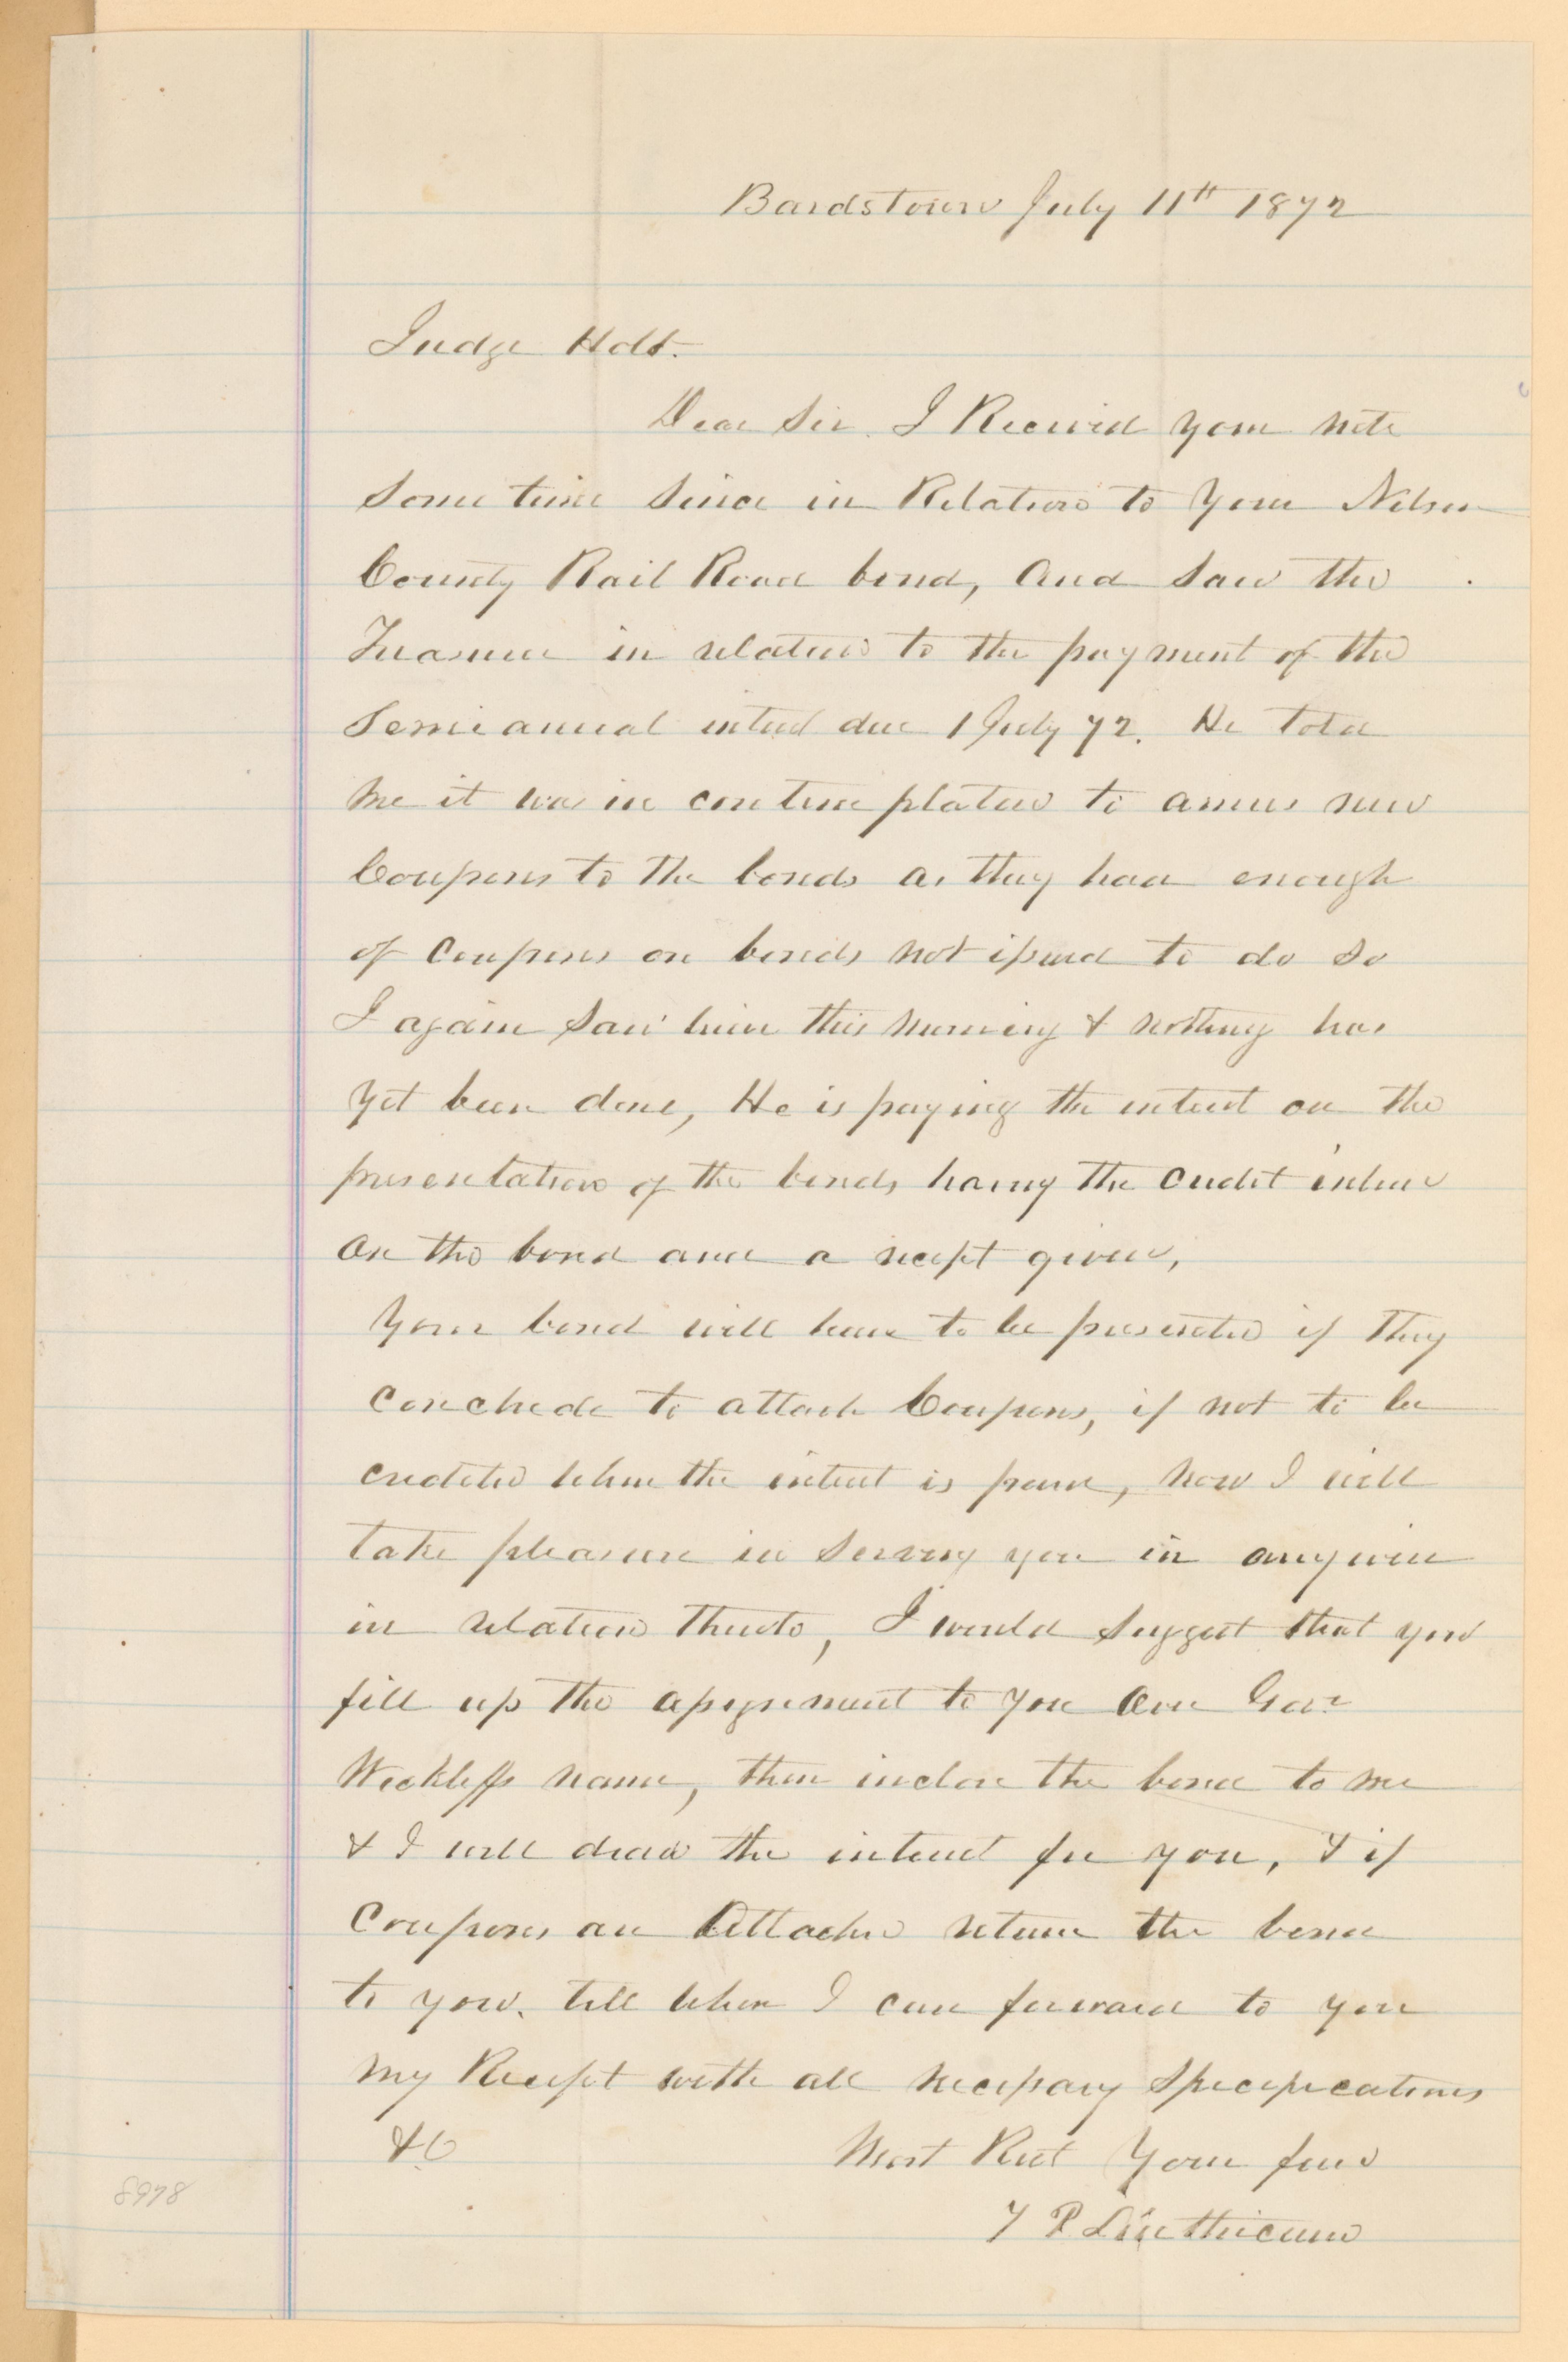 Bardstown July 11th 1872
Judge Holt.
Dear Sir. I Received your note
some time since in Relation to your Nelson
County Rail Road bond, and saw the
Treasurer in relation to the payment of the
Semi annual interest due 1 July 72. He told
me it was in contemplation to annex new
Coupons to the bonds as they had enough
of coupons on bonds not issued to do so
I again saw him this morning & nothing has
yet been done, He is paying the interest on the
presentation of the bonds having the credit indorsed
on the bond and a receipt given,
Your bond will have to be presented if they
conclude to attach Coupons, if not to be
credited when the interest is paid, now I will
take pleasure in serving you in any wise
in relation thereto, I would suggest that you
fill up the assignment to you over Gov
Wickliffs name, then inclose the bond to me
& I will draw the interest for you, & if
Coupons are Attached return the bond
to you. till when I can forward to you
my Receipt with all necessary specifications
&C Most Rect Your friend
T P Linthicum
8978